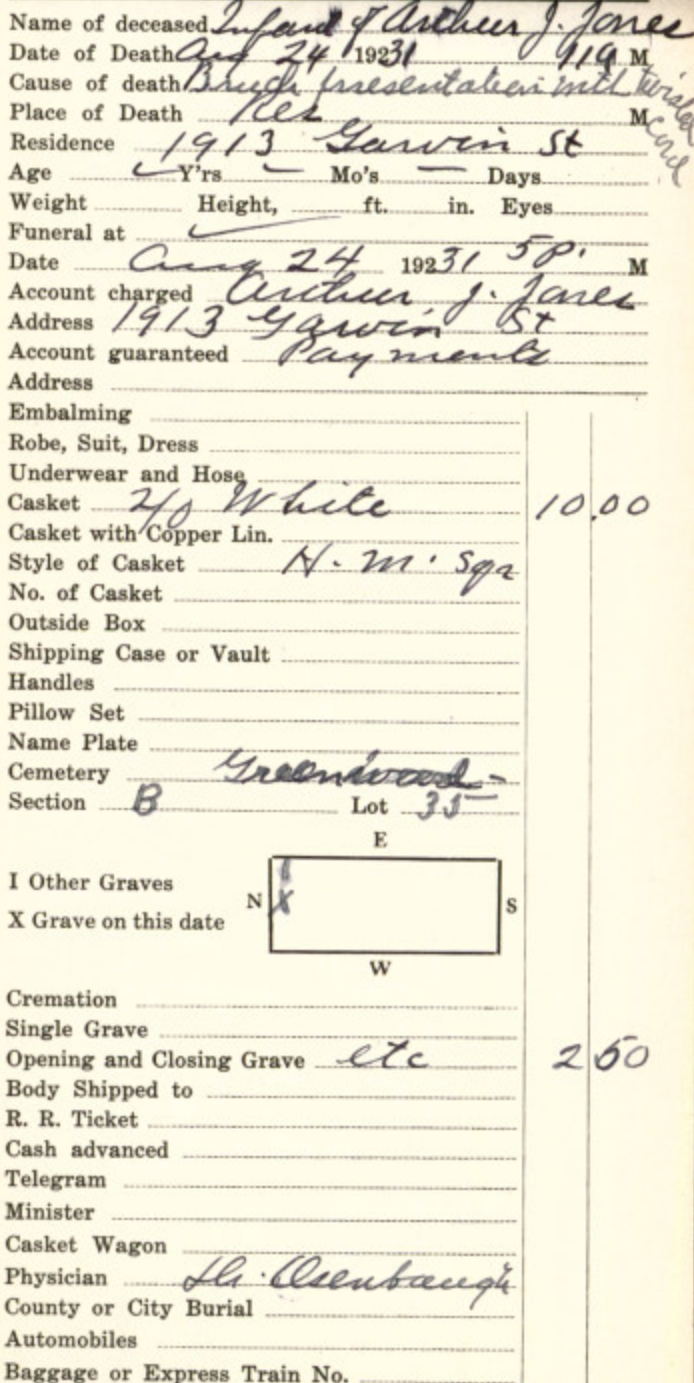 Name of deceased Infant of Arthur J. Jones
Date of Death Aug 24 19231 11 a M
Cause of death Breech presentation with twisted cord
Place of Death Res M
Residence 1913 Garvin St
Age Y'rs Mo's Days
Weight Height, ft. in. Eyes
Funeral at
Date Aug 24 19231 5 P. M
Account charged Arthur J. Jones
Address 1913 Garvin St
Account guaranteed Payments
Address
Embalming
Robe, Suit, Dress
Underwear and Hose
Casket 2/0 White 10.00
Casket with Copper Lin.
Style of Casket H. M. Sqr
No. of Casket
Outside Box
Shipping Case or Vault
Handles
Pillow Set
Name Plate
Cemetery Greenwood
Section B Lot 35
E
I Other Graves
N I X S
X Grave on this date
W
Cremation
Single Grave
Opening and Closing Grave etc 2 50
Body Shipped to
R. R. Ticket
Cash advanced
Telegram
Minister
Casket Wagon
Physician Dr. Osenbaugh
County or City Burial
Automobiles
Baggage or Express Train No.